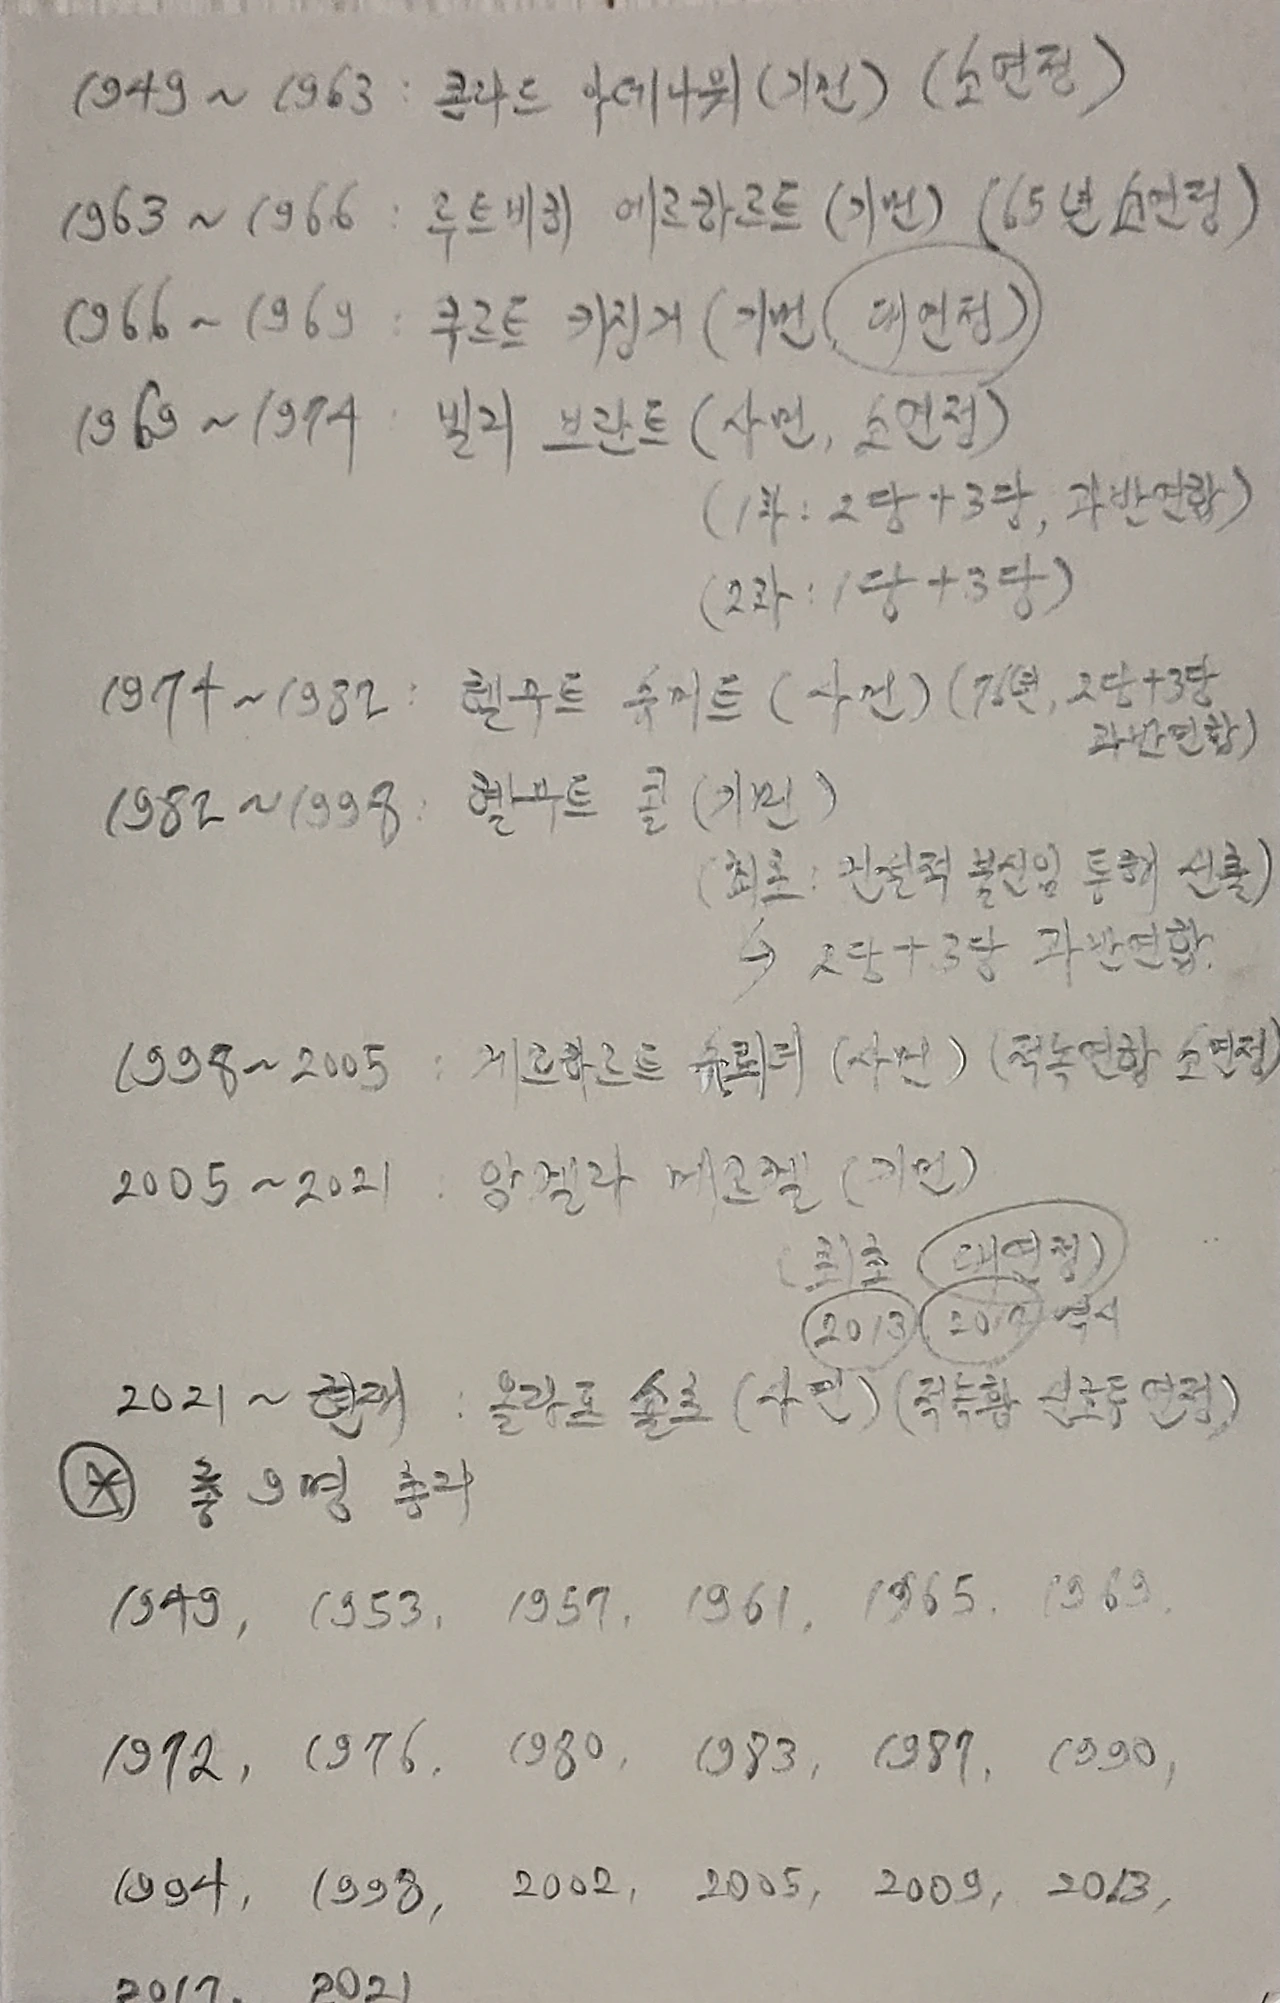 1949 ~ 1963 : 콘라드 아데나워 (기민) (소연정)
1963 ~ 1966 : 루트비히 에르하르트 (기민) (65년 소연정)
1966 ~ 1969 : 쿠르트 키징거 (기민, 대연정)
1969 ~ 1974 : 빌리 브란트 (사민, 소연정)
(1차 : 2당 + 3당, 과반연합)
(2차 : 1당 + 3당)
1974 ~ 1982 : 헬무트 슈미트 (사민) (76년, 2당+3당
과반연합)
1982 ~ 1998 : 헬무트 콜 (기민)
(최초 : 건설적 불신임 통해 선출)
→ 2당 + 3당 과반연합.
1998 ~ 2005 : 게르하르트 슈뢰더 (사민) (적녹연합 소연정)
2005 ~ 2021 : 앙겔라 메르켈 (기민)
(최초 대연정)
2013 2017 역시
2021 ~ 현재 : 올라프 숄츠 (사민) (적녹황 신호등연정)
* 총 9명 총리
1949, 1953, 1957, 1961, 1965, 1969,
1972, 1976, 1980, 1983, 1987, 1990,
1994, 1998, 2002, 2005, 2009, 2013,
2017, 2021